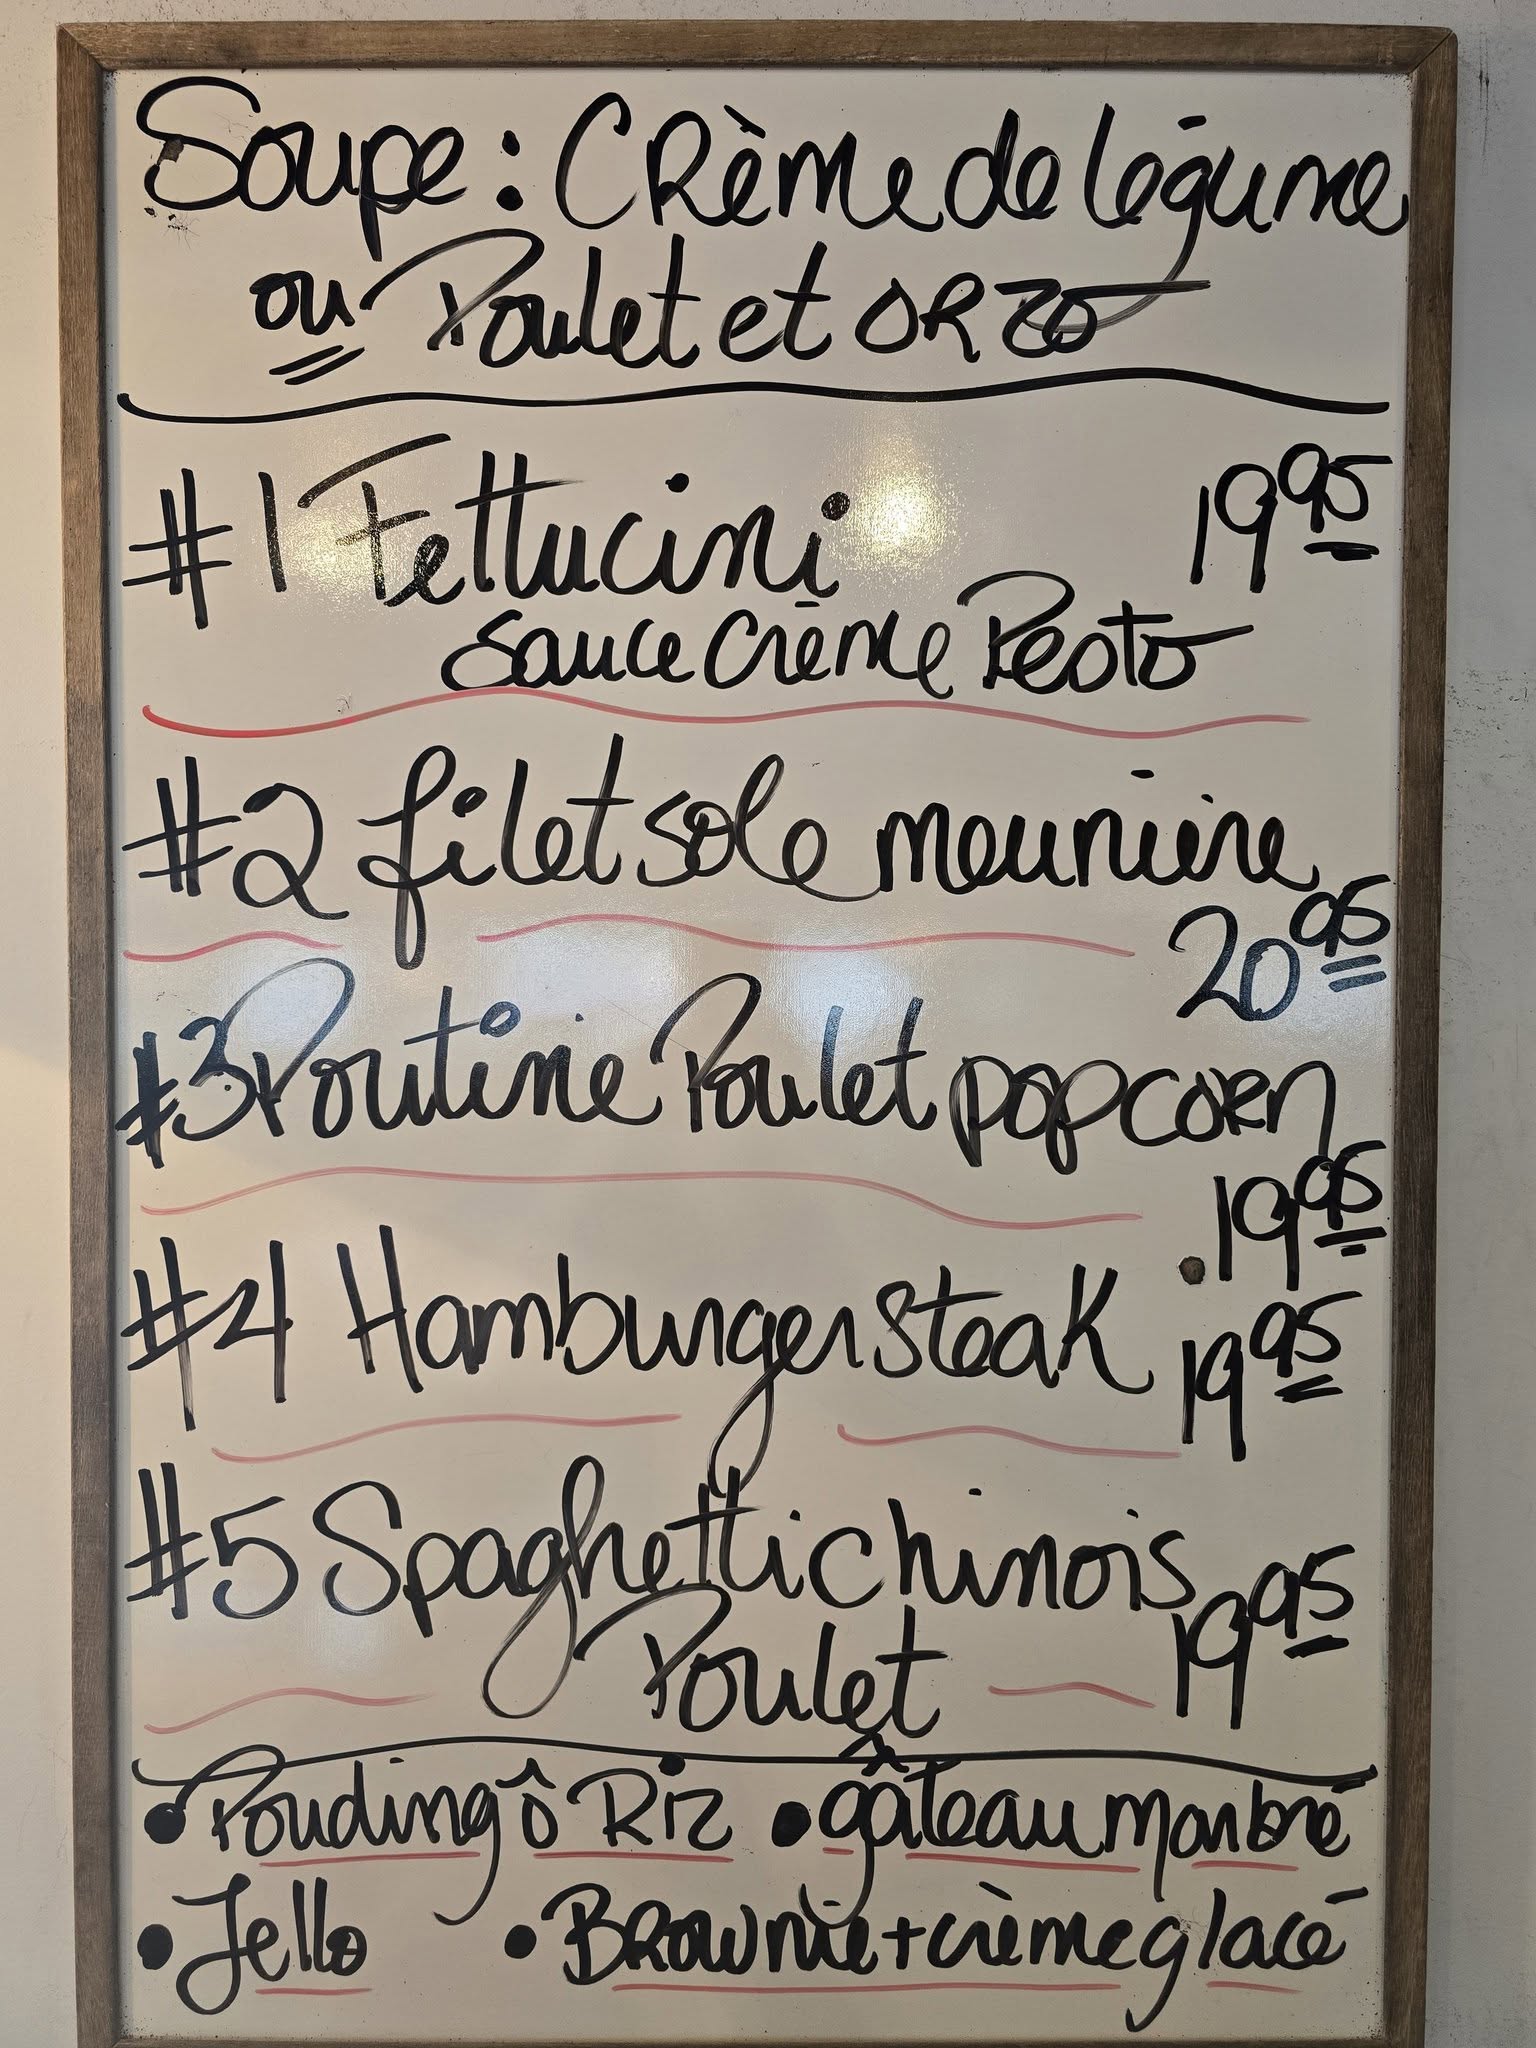 Soupe : Crème de légume
ou Poulet et ORZO
#1 Fettucini 19 95
sauce Crème Pesto
#2 filet sole meunière
20 95
#3 Poutine Poulet popcorn
19 95
#4 Hamburger steak 19 95
#5 Spaghetti chinois
Poulet 19 95
• Pouding ô Riz • gâteau marbré
• Jello • Brownie + crème glacé